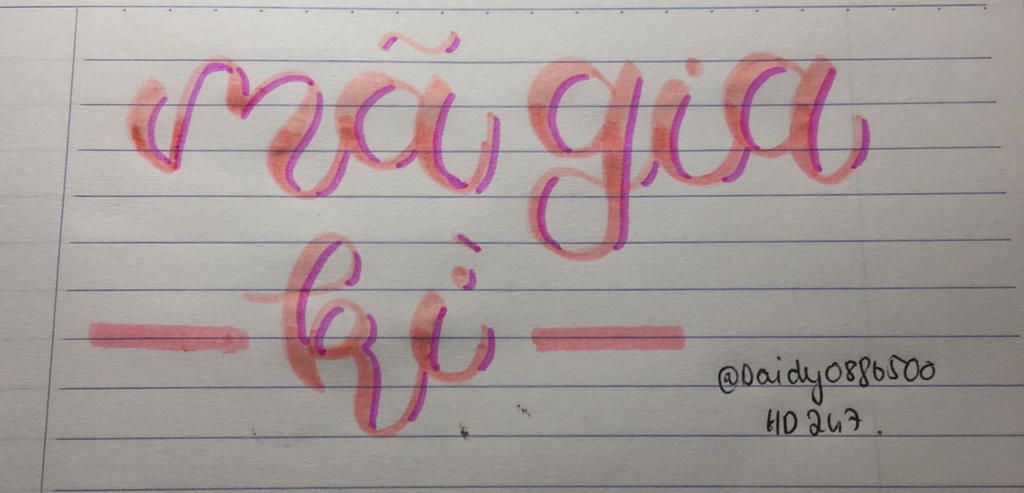 mã gia
kì
@Daidy0886500
HD247.